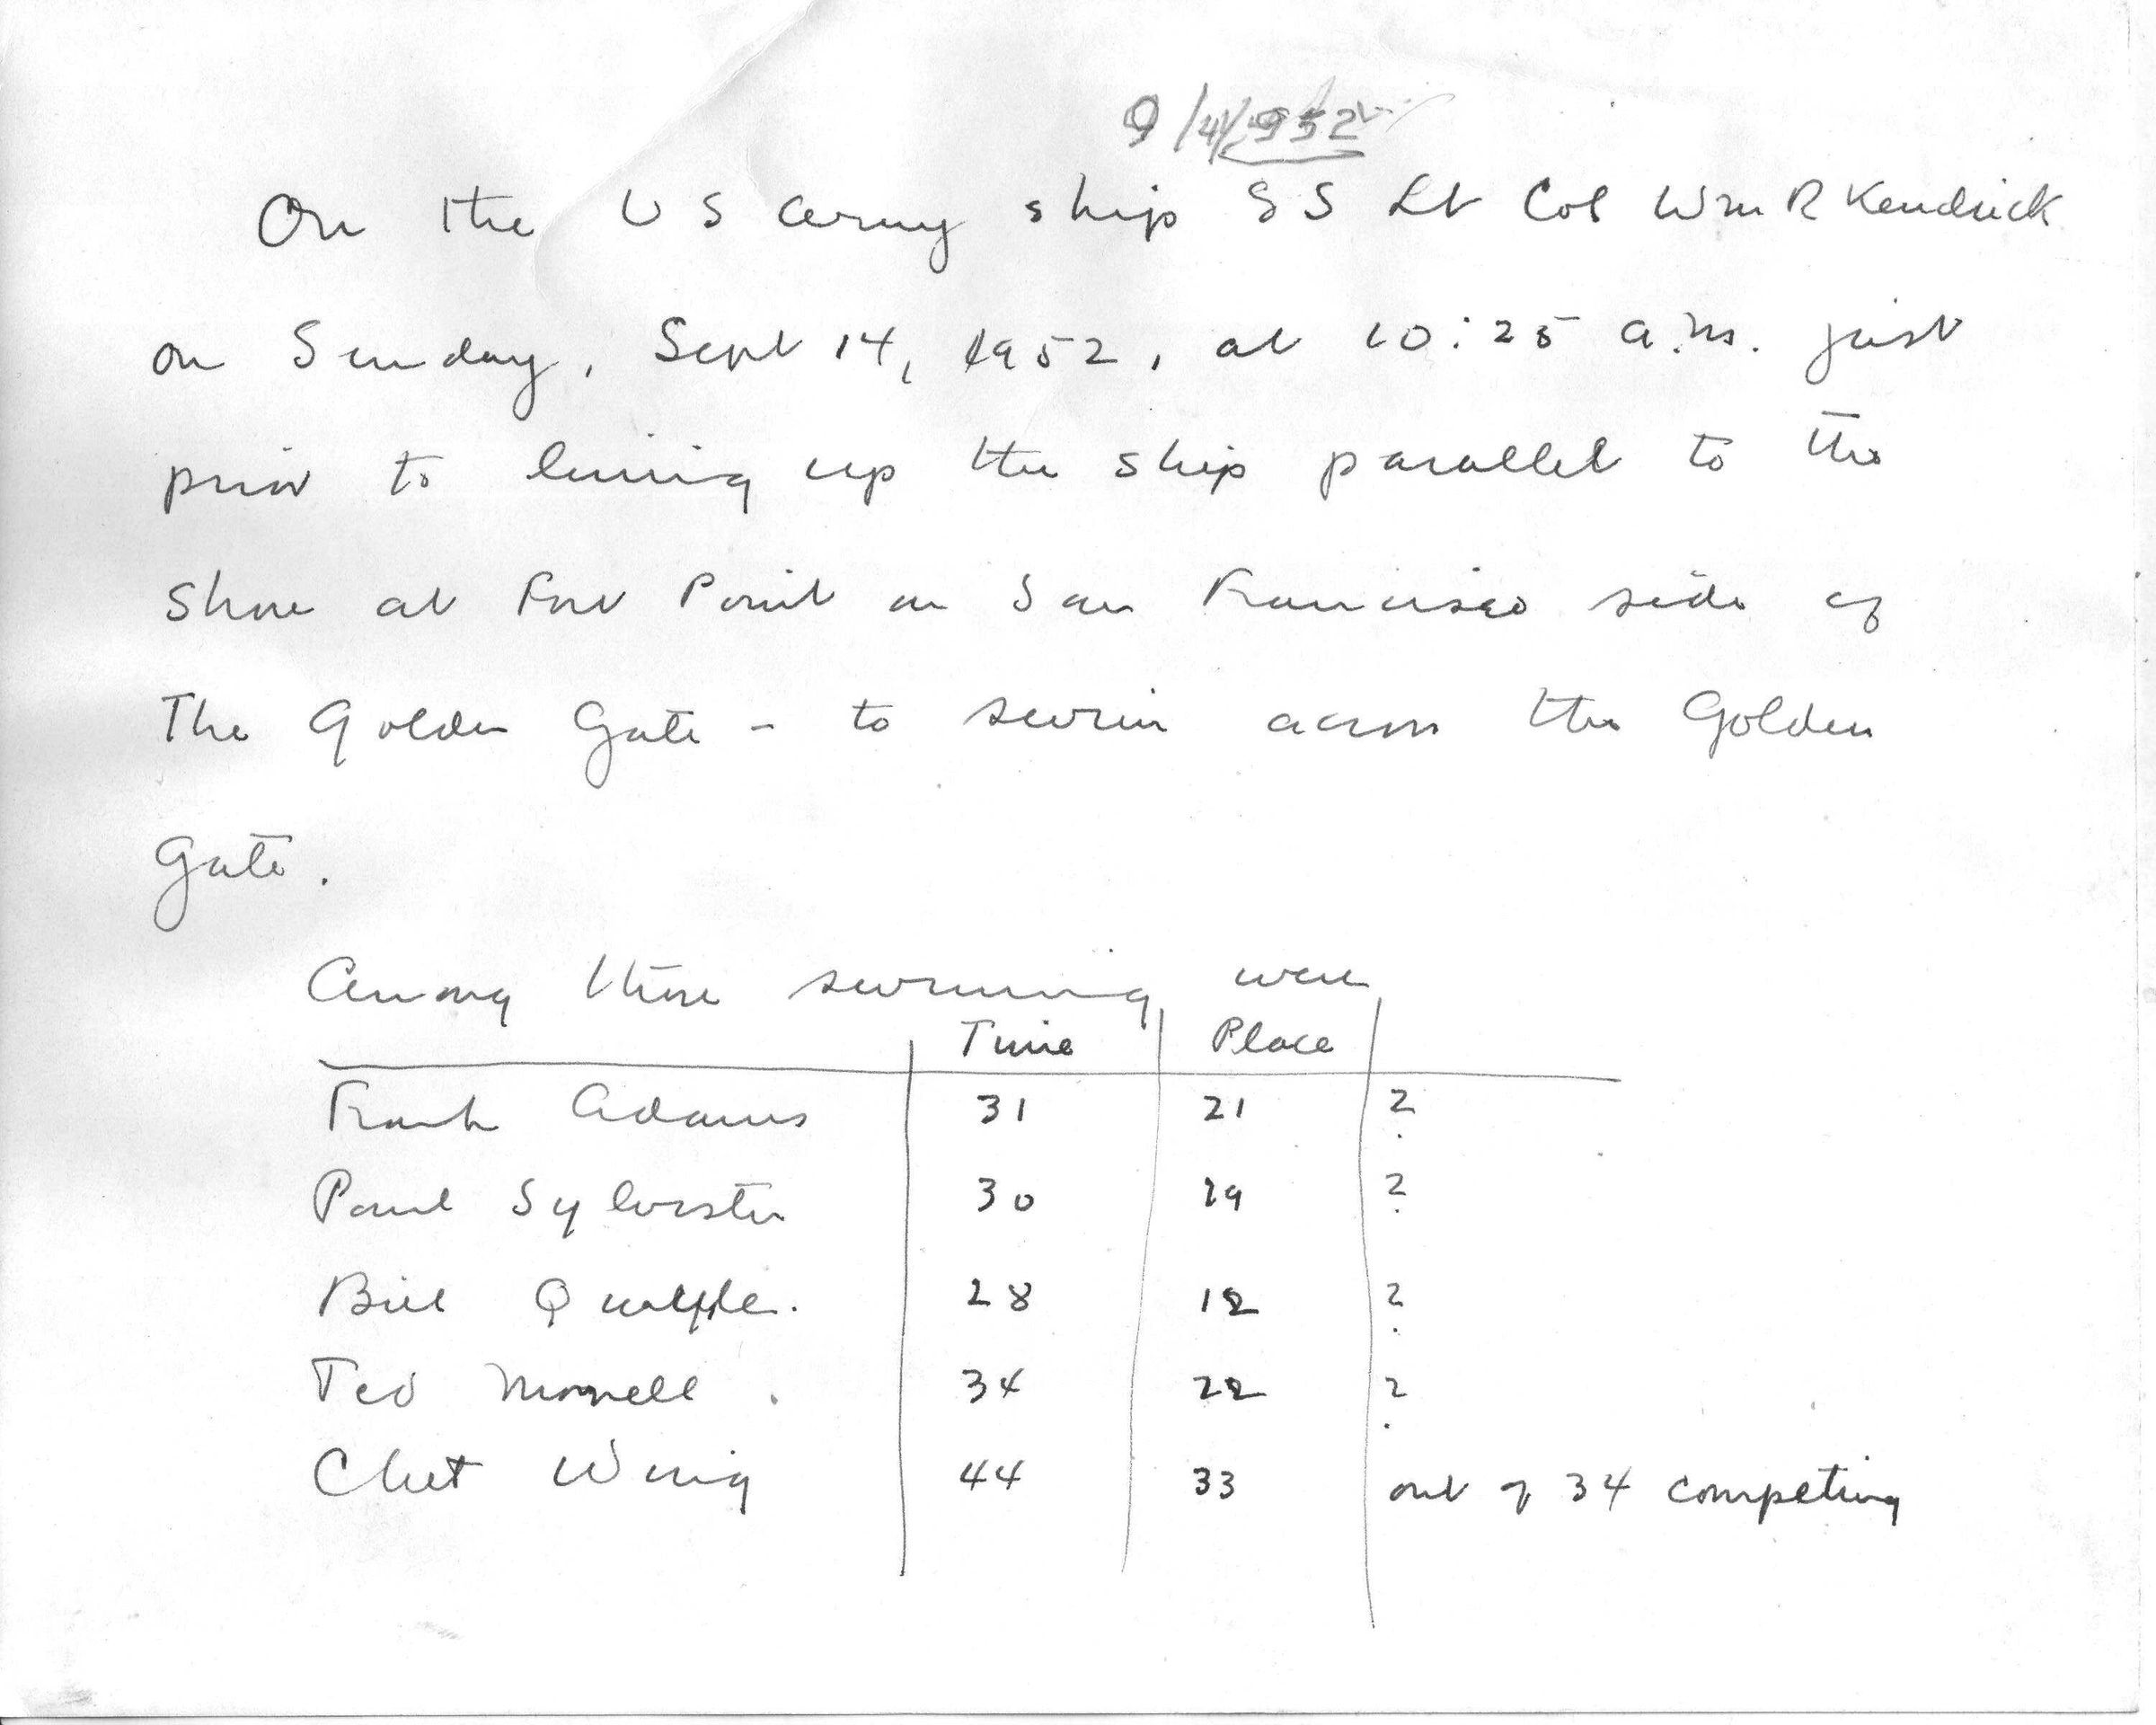 9/14/1952
On the US Army ship SS Lt Col Wm R Kendrick
on Sunday, Sept 14, 1952, at 10:25 a.m. just
prior to lining up the ship parallel to the
shore at Fort Point on San Francisco side of
The Golden Gate - to swim across the Golden
Gate.
Among those swimming were
Time Place
Frank Adams 31 21 ?
Paul Sylvester 30 19 ?
Bill 28 ?
Ted Morrell 34 22 ?
Chet Wing 44 33 out of 34 competing